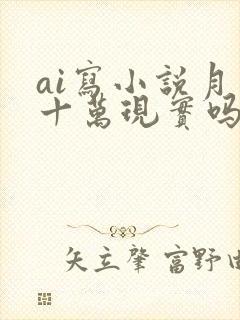 ai寫小說月
十萬現實嗎
矢立肇 富野由